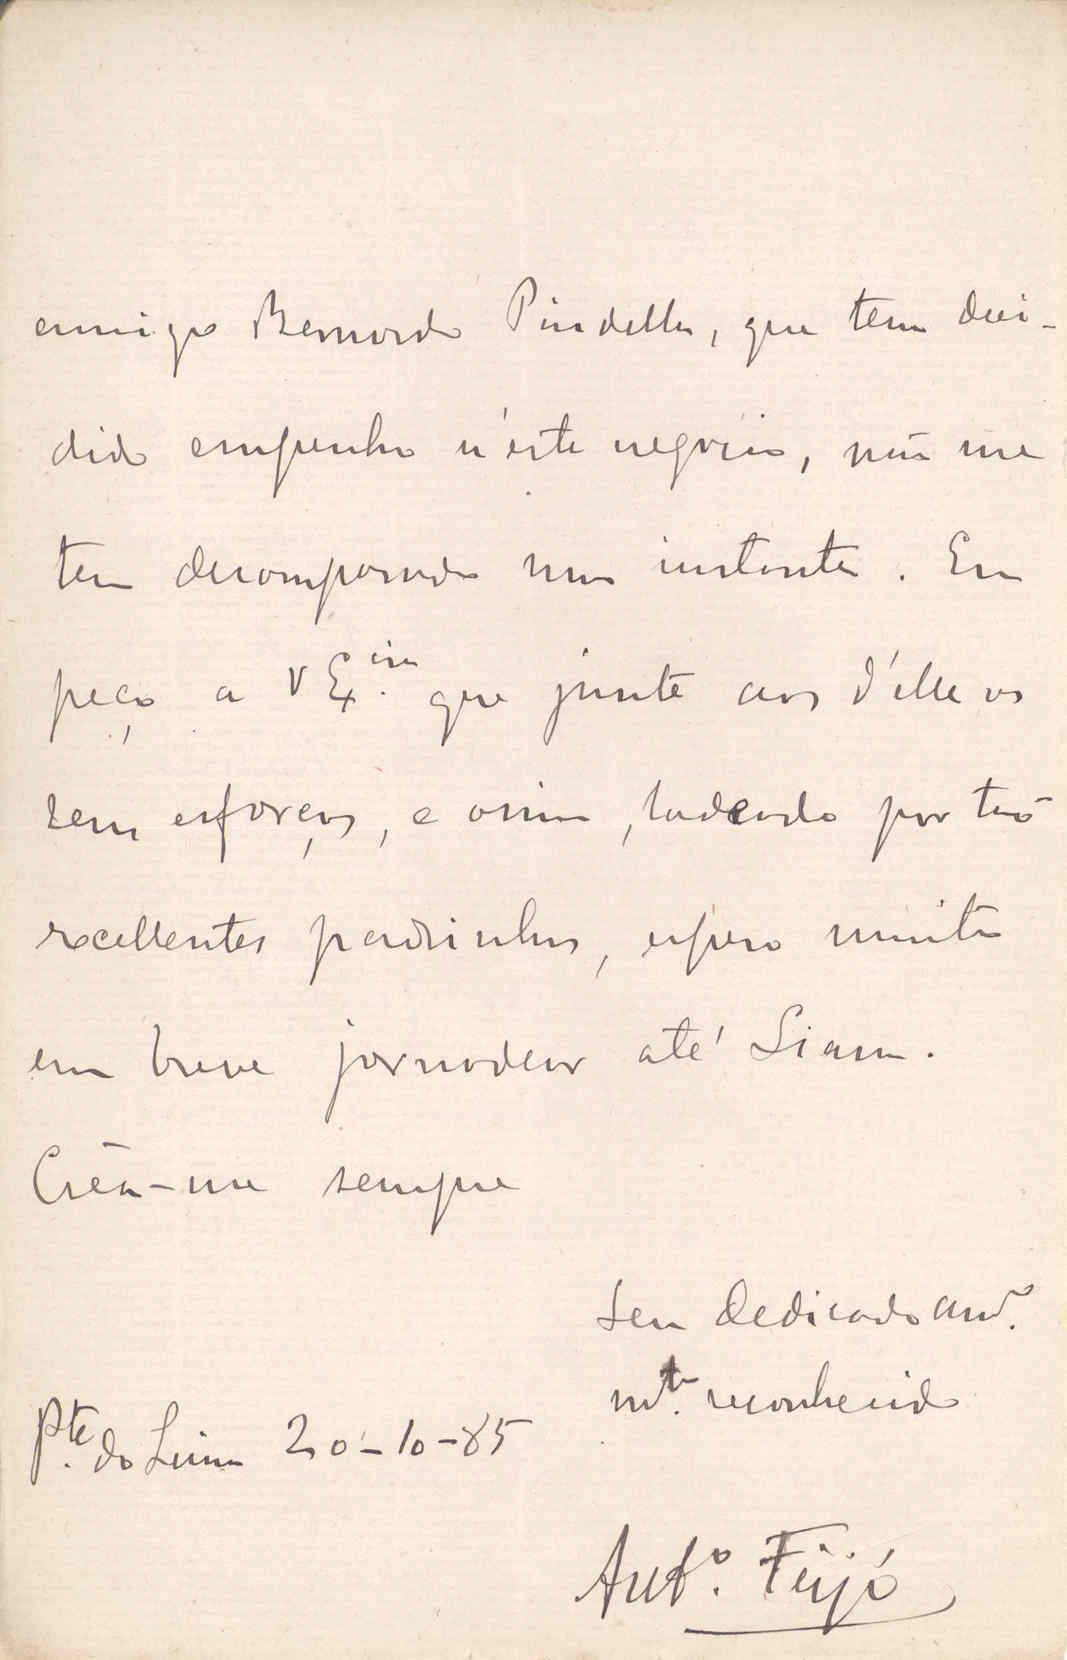 amigo Bernardo Pindella, que tem deci-
dido empenho n'este negocio, não me
tem desamparado um instante. Eu
peço a V Ex.cia que junte aos d'elle os
seus esforços, e assim, ladeado por tão
excellentes padrinhos, espero muito
em breve jornadear até Siam.
Crêa-me sempre
Seu dedicado am.o
mt.o reconhecido
Pte. do Lima 20-10-85
Ant.o Feijó